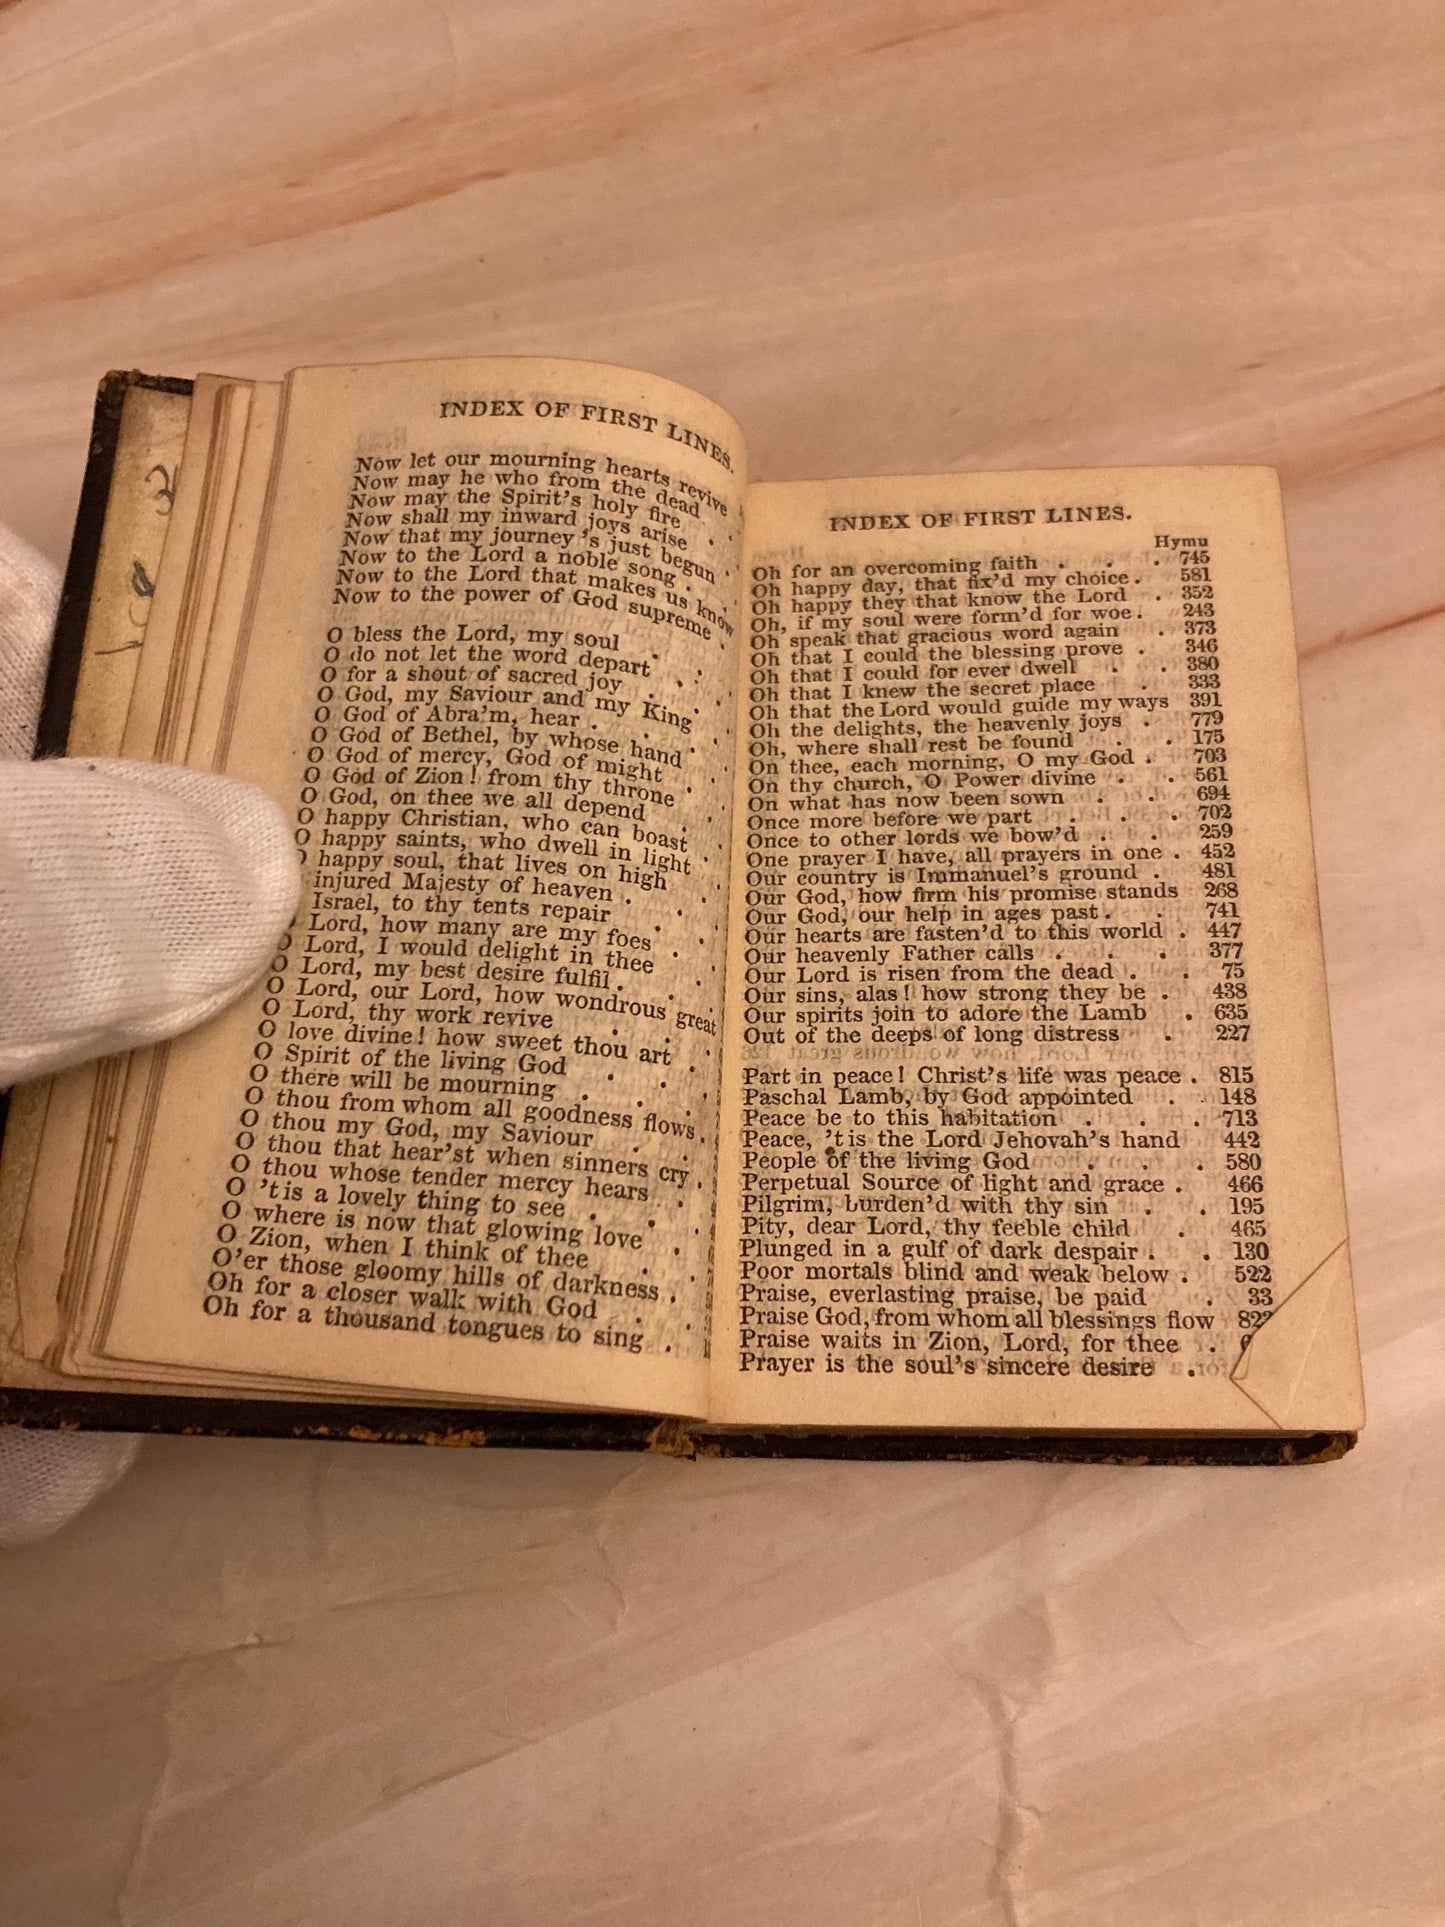 INDEX OF FIRST LINES.
Now let our mourning hearts revive
Now may he who from the dead
Now may the Spirit's holy fire
Now shall my inward joys arise
Now that my journey 's just begun
Now to the Lord a noble song
Now to the Lord that makes us know
Now to the power of God supreme
O bless the Lord, my soul
O do not let the word depart
O for a shout of sacred joy
O God, my Saviour and my King
O God of Abra'm, hear
O God of Bethel, by whose hand
O God of mercy, God of might
O God of Zion! from thy throne
O God, on thee we all depend
O happy Christian, who can boast
O happy saints, who dwell in light
happy soul, that lives on high
injured Majesty of heaven
Israel, to thy tents repair
Lord, how many are my foes
O Lord, I would delight in thee
O Lord, my best desire fulfil
O Lord, our Lord, how wondrous great
O Lord, thy work revive
O love divine! how sweet thou art
O Spirit of the living God
O there will be mourning
O thou from whom all goodness flows
O thou my God, my Saviour
O thou that hear'st when sinners cry
O thou whose tender mercy hears
O 'tis a lovely thing to see
O where is now that glowing love
O Zion, when I think of thee
O'er those gloomy hills of darkness
Oh for a closer walk with God
Oh for a thousand tongues to sing
INDEX OF FIRST LINES.
Hymn
Oh for an overcoming faith . . . 745
Oh happy day, that fix'd my choice . 581
Oh happy they that know the Lord . 352
Oh, if my soul were form'd for woe . 243
Oh speak that gracious word again . 373
Oh that I could the blessing prove . 346
Oh that I could for ever dwell . . 380
Oh that I knew the secret place . 333
Oh that the Lord would guide my ways 391
Oh the delights, the heavenly joys . 779
Oh, where shall rest be found . . 175
On thee, each morning, O my God . 703
On thy church, O Power divine . . 561
On what has now been sown . . 694
Once more before we part . . . 702
Once to other lords we bow'd . . 259
One prayer I have, all prayers in one . 452
Our country is Immanuel's ground . 481
Our God, how firm his promise stands 268
Our God, our help in ages past . . 741
Our hearts are fasten'd to this world . 447
Our heavenly Father calls . . . 377
Our Lord is risen from the dead . . 75
Our sins, alas! how strong they be . 438
Our spirits join to adore the Lamb . 635
Out of the deeps of long distress . 227
Part in peace! Christ's life was peace . 815
Paschal Lamb, by God appointed . . 148
Peace be to this habitation . . . 713
Peace, 'tis the Lord Jehovah's hand 442
People of the living God . . . 580
Perpetual Source of light and grace . 466
Pilgrim, burden'd with thy sin . . 195
Pity, dear Lord, thy feeble child . 465
Plunged in a gulf of dark despair . . 130
Poor mortals blind and weak below . 522
Praise, everlasting praise, be paid . 33
Praise God, from whom all blessings flow
Praise waits in Zion, Lord, for thee .
Prayer is the soul's sincere desire .